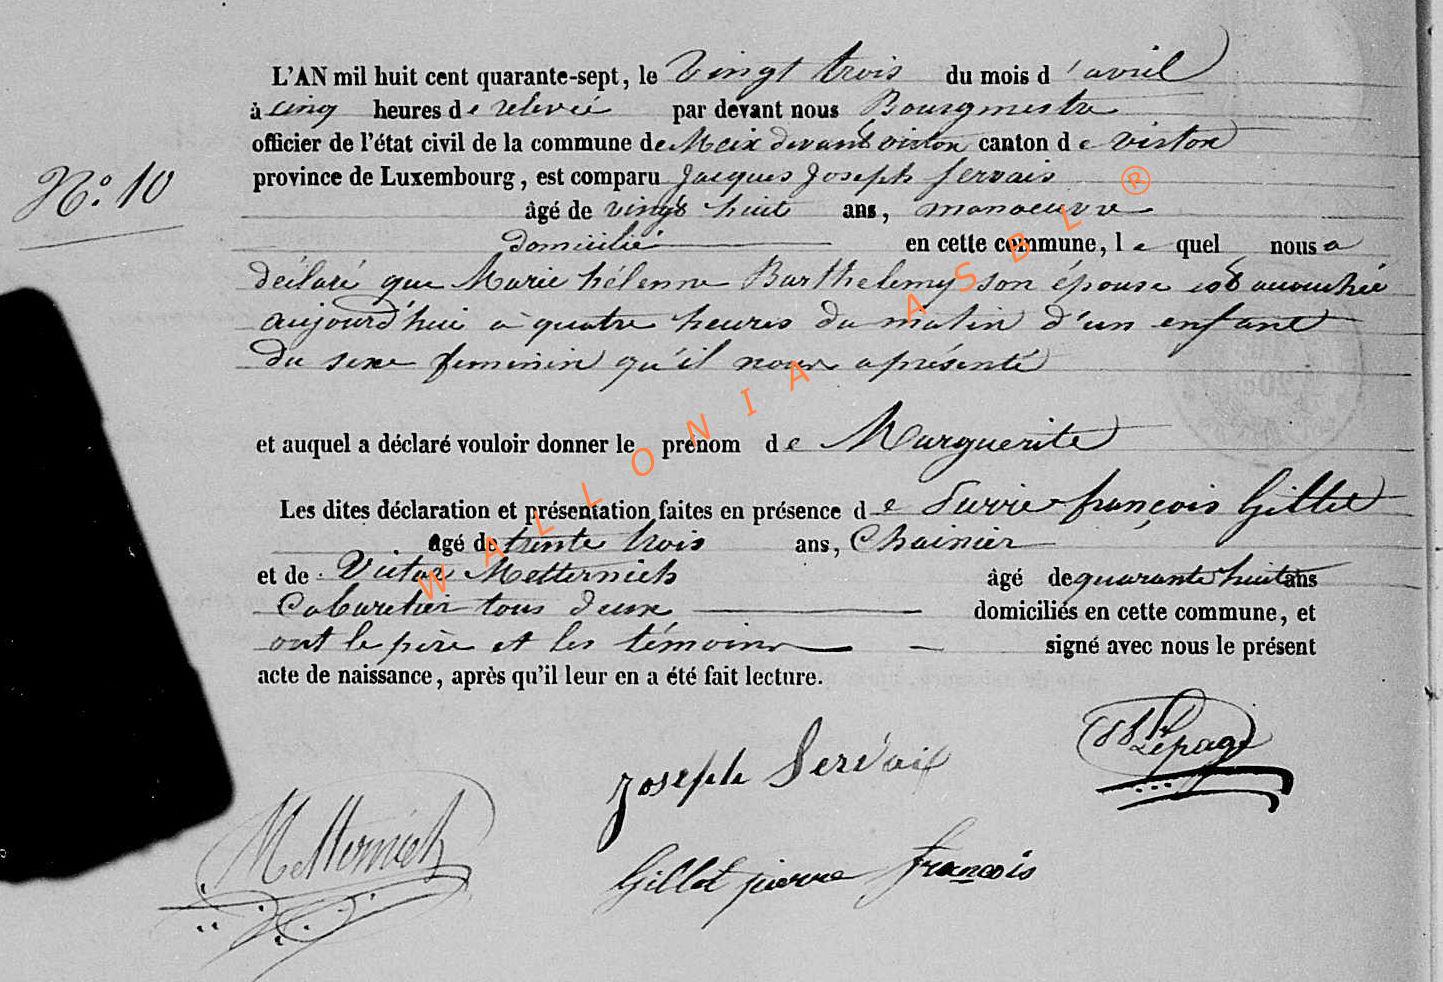 L'AN mil huit cent quarante-sept, le Vingt trois du mois d'avril
à cinq heures de relevée par devant nous Bourgmestre
officier de l'état civil de la commune de Meix devant virton canton de virton
N.° 10
province de Luxembourg, est comparu Jacques Joseph Servais
âgé de vingt huit ans, manoeuvre
domicilié en cette commune, le quel nous a
déclaré que Marie hélenne Barthelemy son épouse est accouchée
aujourd'hui à quatre heures du matin d'un enfant
du sexe feminin qu'il nous a présenté
et auquel a déclaré vouloir donner le prénom de Marguerite
Les dites déclaration et présentation faites en présence de Pierre françois Gillet
agé de trente trois ans, Chainier
et de Victor Metternich âgé de quarante huit ans
Cabaretier tous deux domiciliés en cette commune, et
ont le père et les témoins signé avec nous le présent
acte de naissance, après qu'il leur en a été fait lecture.
Lepage
Joseph Servais
Metternich
Gillet pierre françois
WALLONIA ASBL ®